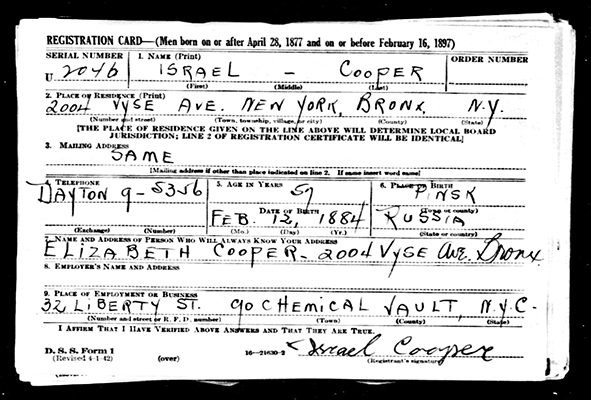 REGISTRATION CARD—(Men born on or after April 28, 1877 and on or before February 16, 1897)
SERIAL NUMBER 1. NAME (Print) ORDER NUMBER
U 2046 ISRAEL - COOPER
(First) (Middle) (Last)
2. PLACE OF RESIDENCE (Print)
2004 VYSE AVE. NEW YORK, BRONX, N.Y.
(Number and street) (Town, township, village, or city) (County) (State)
[THE PLACE OF RESIDENCE GIVEN ON THE LINE ABOVE WILL DETERMINE LOCAL BOARD
JURISDICTION; LINE 2 OF REGISTRATION CERTIFICATE WILL BE IDENTICAL]
3. MAILING ADDRESS
SAME
[Mailing address if other than place indicated on line 2. If same insert word same]
4. TELEPHONE 5. AGE IN YEARS 6. PLACE OF BIRTH
DAYTON 9-5356 57 PINSK
DATE OF BIRTH (Town or county)
FEB. 12, 1884 RUSSIA
(Exchange) (Number) (Mo.) (Day) (Yr.) (State or country)
7. NAME AND ADDRESS OF PERSON WHO WILL ALWAYS KNOW YOUR ADDRESS
ELIZABETH COOPER - 2004 VYSE AVE. BRONX
8. EMPLOYER'S NAME AND ADDRESS
9. PLACE OF EMPLOYMENT OR BUSINESS
32 LIBERTY ST. 90 CHEMICAL VAULT, N.Y.C.
(Number and street or R. F. D. number) (Town) (County) (State)
I AFFIRM THAT I HAVE VERIFIED ABOVE ANSWERS AND THAT THEY ARE TRUE.
D. S. S. Form 1
(Revised 4-1-42) (over) 16—21630-2 Israel Cooper
(Registrant's signature)